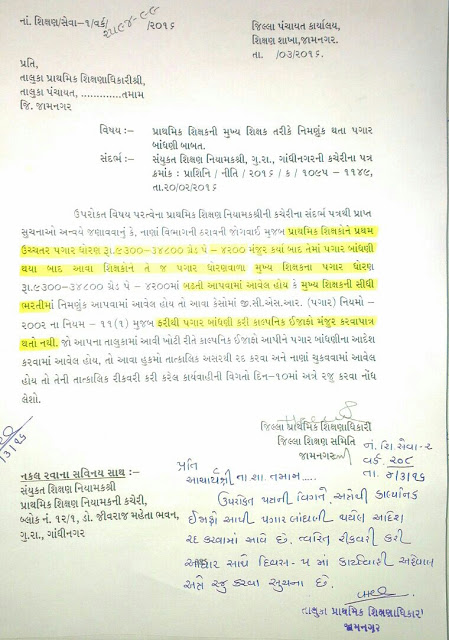 નાં. શિક્ષણ/સેવા-૧/વર્ક/ ૨૫૯૪-૯૯ /૨૦૧૬
જિલ્લા પંચાયત કાર્યાલય,
શિક્ષણ શાખા, જામનગર.
તા. /૦૩/૨૦૧૬.
પ્રતિ,
તાલુકા પ્રાથમિક શિક્ષણાધિકારીશ્રી,
તાલુકા પંચાયત, .............તમામ
જિ. જામનગર
વિષય :- પ્રાથમિક શિક્ષકની મુખ્ય શિક્ષક તરીકે નિમણુંક થતા પગાર
બાંધણી બાબત.
સંદર્ભ :- સંયુક્ત શિક્ષણ નિયામકશ્રી, ગુ.રા., ગાંધીનગરની કચેરીના પત્ર
ક્રમાંક : પ્રાશિનિ / નીતિ / ૨૦૧૬ / ક / ૧૦૯૫ – ૧૧૪૯,
તા.૨૦/૦૨/૨૦૧૬
ઉપરોક્ત વિષય પરત્વેના પ્રાથમિક શિક્ષણ નિયામકશ્રીની કચેરીના સંદર્ભ પત્રથી પ્રાપ્ત
સુચનાઓ અન્વયે જણાવવાનું કે, નાણાં વિભાગની ઠરાવની જોગવાઈ મુજબ પ્રાથમિક શિક્ષકોને પ્રથમ
ઉચ્ચતર પગાર ધોરણ રૂા.૯૩૦૦-૩૪૮૦૦ ગ્રેડ પે – ૪૨૦૦ મંજુર કર્યા બાદ તેમાં પગાર બાંધણી
થયા બાદ આવા શિક્ષકોને તે જ પગાર ધોરણવાળા મુખ્ય શિક્ષકના પગાર ધોરણ
રૂા.૯૩૦૦-૩૪૮૦૦ ગ્રેડ પે – ૪૨૦૦માં બઢતી આપવામાં આવેલ હોય કે મુખ્ય શિક્ષકની સીધી
ભરતીમાં નિમણુંક આપવામાં આવેલ હોય તો આવા કેસોમાં જી.સી.એસ.આર. (પગાર) નિયમો -
૨૦૦૨ ના નિયમ – ૧૧(૧) મુજબ ફરીથી પગાર બાંધણી કરી કાલ્પનિક ઈજાફો મંજુર કરવાપાત્ર
થતો નથી. જો આપના તાલુકામાં આવી ખોટી રીતે કાલ્પનિક ઈજાફો આપીને પગાર બાંધણીના આદેશ
કરવામાં આવેલ હોય, તો આવા હુકમો તાત્કાલિક અસરથી રદ કરવા અને નાણાં ચુકવવામાં આવેલ
હોય તો તેની તાત્કાલિક રીકવરી કરી કરેલ કાર્યવાહીની વિગતો દિન-૧૦માં અત્રે રજુ કરવા નોંધ
લેશો.
જિલ્લા પ્રાથમિક શિક્ષણાધિકારી
જિલ્લા શિક્ષણ સમિતિ
જામનગર
નં. શિ. સેવા-૨
વર્ક. ૨૦૮
તા. ૭/૩/૧૬
/૩/૧૬
નકલ રવાના સવિનય સાથ :-
સંયુક્ત શિક્ષણ નિયામકશ્રી
પ્રાથમિક શિક્ષણ નિયામકની કચેરી,
બ્લોક નં. ૧૨/૧, ડૉ. જીવરાજ મહેતા ભવન,
ગુ.રા., ગાંધીનગર
પ્રતિ
આચાર્યશ્રી તા. શા. તમામ....
ઉપરોક્ત પત્રની વિગતે. કાલ્પનિક
ઈજાફો આપી પગાર બાંધણી થયેલ આદેશ
રદ કરવામાં આવે છે. ત્વરિત રીકવરી કરી
આધાર સાથે દિવસ-૫ માં કાર્યવાહી અહેવાલ
અત્રે રજુ કરવા સુચના છે.
તાલુકા પ્રાથમિક શિક્ષણાધિકારી
જામનગર